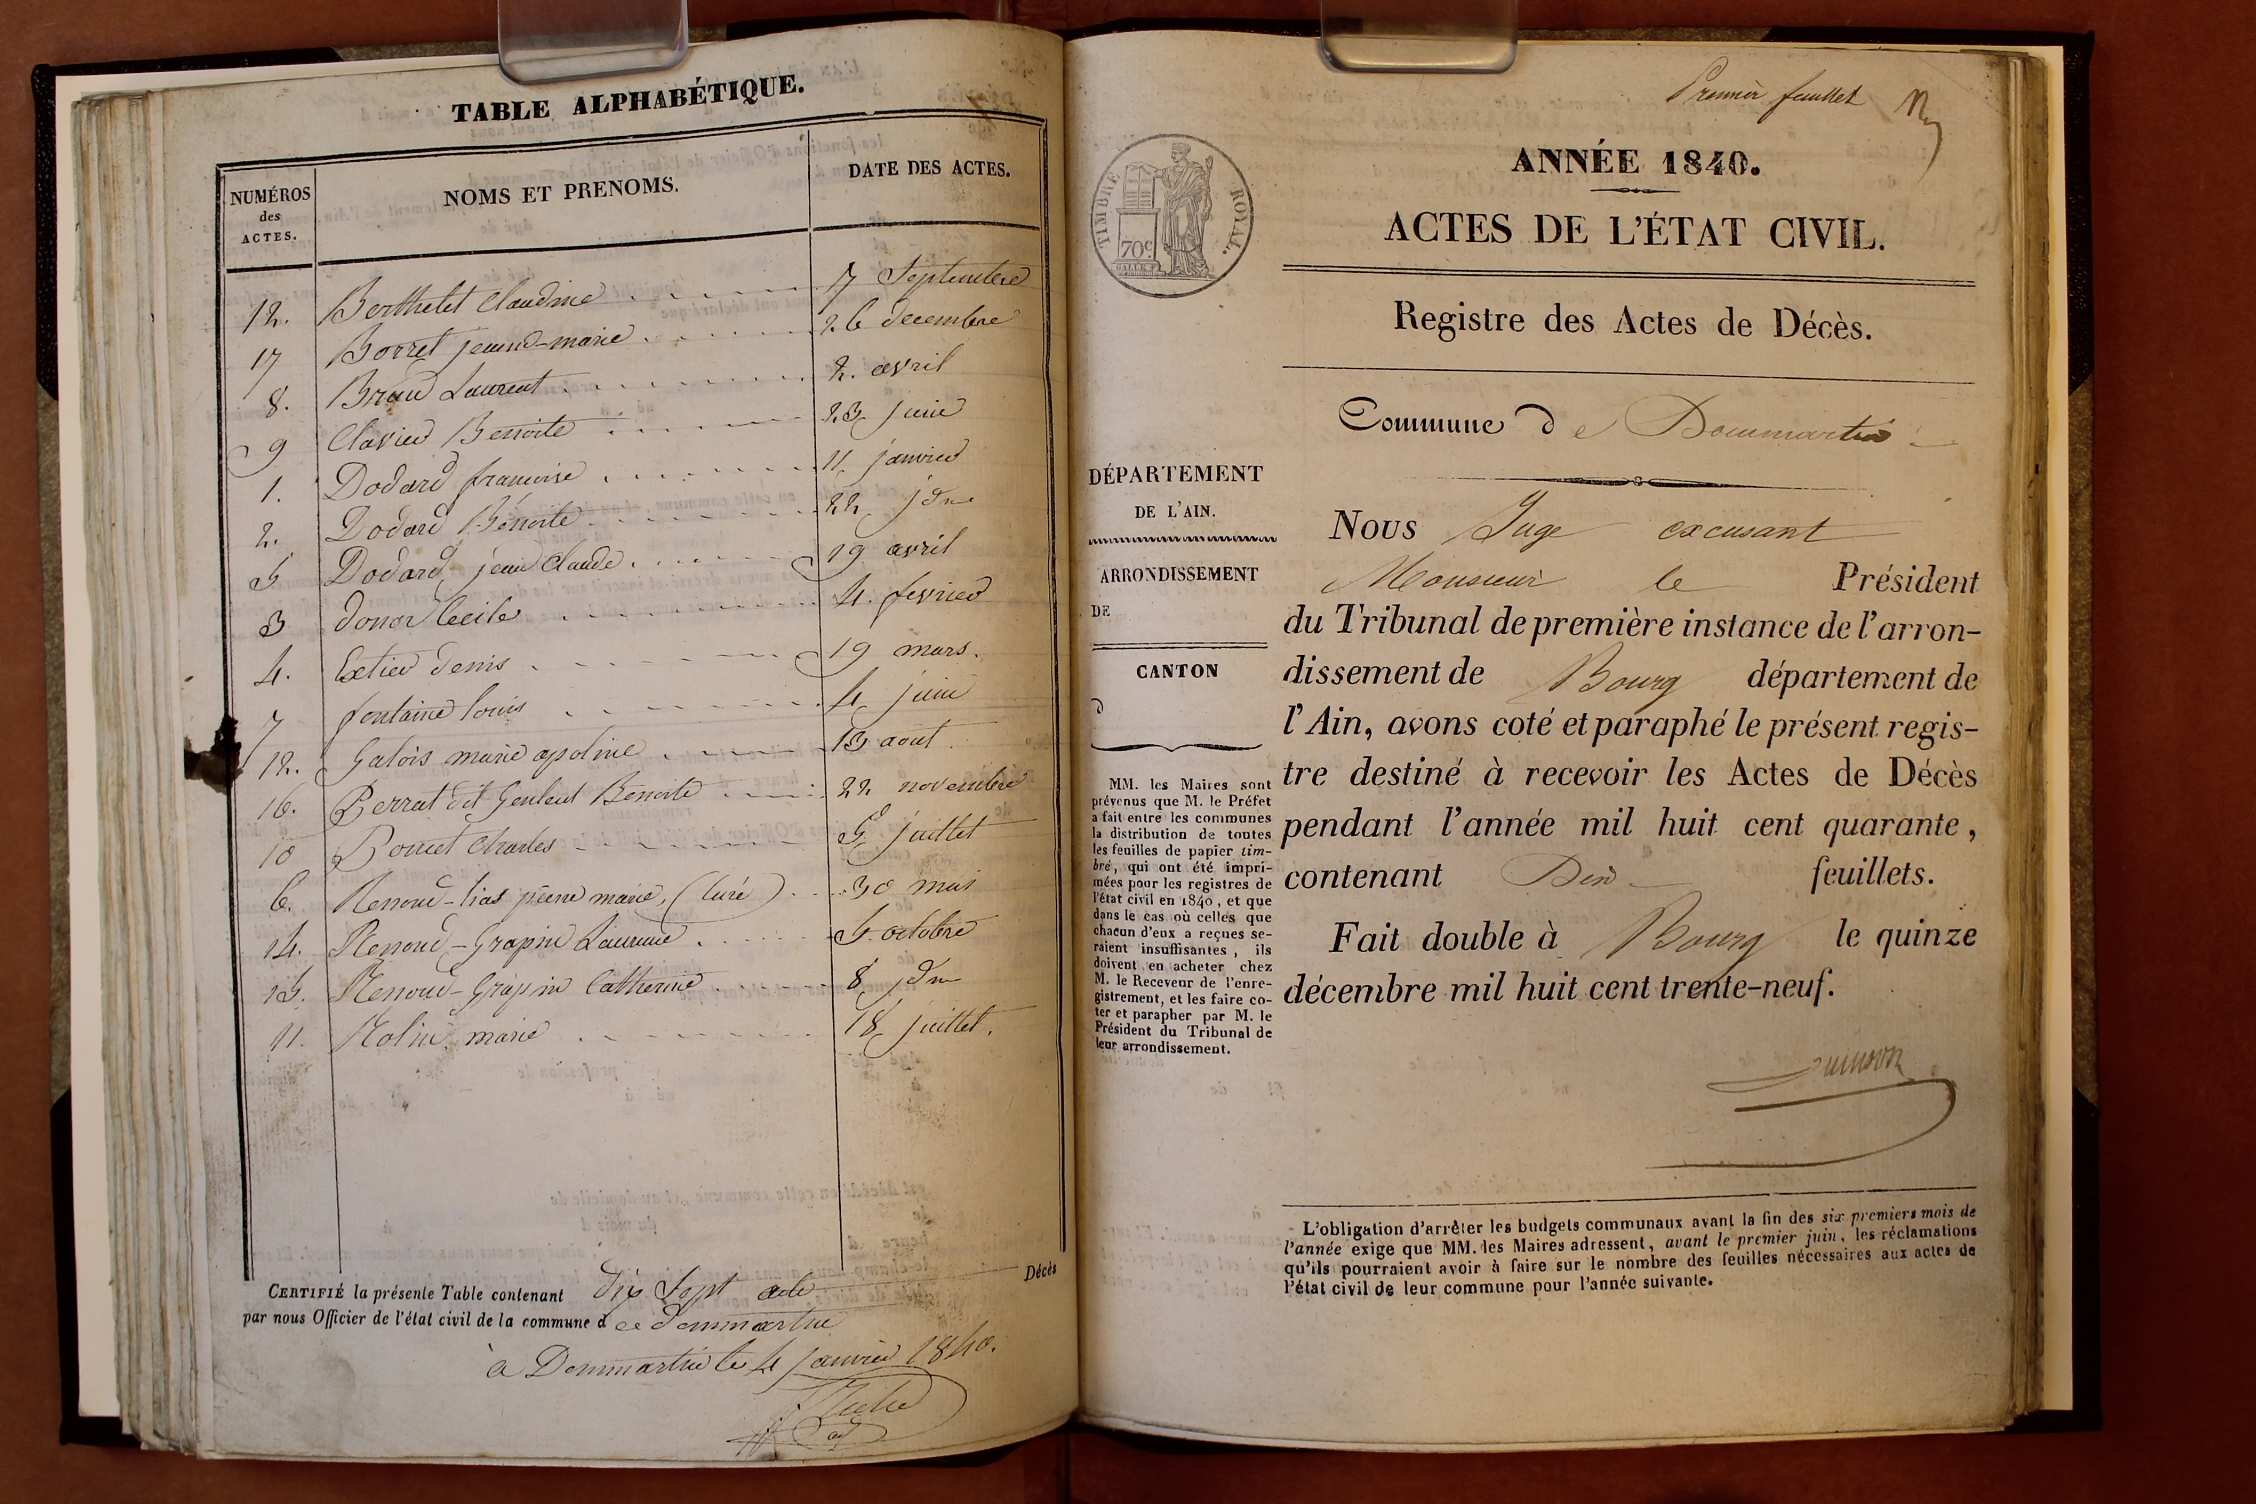 TABLE ALPHABÉTIQUE.
NUMÉROS des ACTES.
NOMS ET PRENOMS.
DATE DES ACTES.
12. Berthelet Claudine 7 Septembre
17 Borret jeanne-marie 26 decembre
8. Braud Laurent 2. avril
9 Clavier Benoite 23 juin
1. Dodard francoise 11 janvier
2. Dodard Benoite 22 jdm
5 Dodard jean Claude 19 avril
3 donor Cecile 4. fevrier
4. Extier denis 19 mars.
7 fontaine louis 4 juin
12. Galois marie apoline 13 aout
16. Perrat dit Genlent Benoite 22 novembre
10 Poncet Charles 5 juillet
6. Renoud-lias pierre marie, (Curé) 30 mai
14. Renoud-Grapin Laurence 5 octobre
15. Renoud-Grapin Catherine 8 jdm
11. Rolin marie 18 juillet.
CERTIFIÉ la présente Table contenant dix Sept acte Décès
par nous Officier de l'état civil de la commune d ee dommartin
à Dommartin le 4 janvier 1840.
Premier feuillet
ANNÉE 1840.
ACTES DE L'ÉTAT CIVIL.
TIMBRE ROYAL.
70c
Registre des Actes de Décès.
Commune d e Dommartin
DÉPARTEMENT
DE L'AIN.
ARRONDISSEMENT
DE
CANTON
d
MM. les Maires sont
prévenus que M. le Préfet
a fait entre les communes
la distribution de toutes
les feuilles de papier tim-
bré, qui ont été impri-
mées pour les registres de
l'état civil en 1840, et que
dans le cas où celles que
chacun d'eux a reçues se-
raient insuffisantes, ils
doivent en acheter chez
M. le Receveur de l'enre-
gistrement, et les faire co-
ter et parapher par M. le
Président du Tribunal de
leur arrondissement.
NOUS Juge excusant
Monsieur le Président
du Tribunal de première instance de l'arron-
dissement de Bourg département de
l'Ain, avons coté et paraphé le présent regis-
tre destiné à recevoir les Actes de Décès
pendant l'année mil huit cent quarante,
contenant Dix feuillets.
Fait double à Bourg le quinze
décembre mil huit cent trente-neuf.
L'obligation d'arrêter les budgets communaux avant la fin des six premiers mois de
l'année exige que MM. les Maires adressent, avant le premier juin, les réclamations
qu'ils pourraient avoir à faire sur le nombre des feuilles nécessaires aux actes de
l'état civil de leur commune pour l'année suivante.